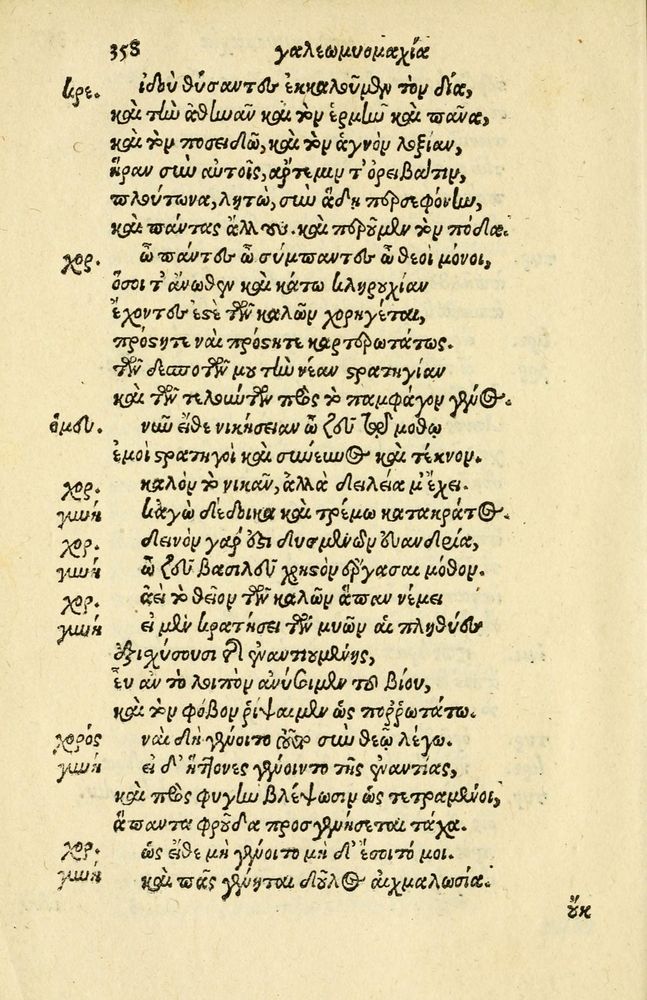 358 γαλεωμυομαχία
κρε. ἰδοὺ θύσαντες ἐκκαλοῦμεν τὸν δία,
καὶ τὴν ἀθηνᾶν καὶ τὸν ἑρμῆν καὶ πᾶνα,
καὶ τὸν ποσειδῶ, καὶ τὸν ἁγνὸν λοξίαν,
ἥραν σὺν αὐτοῖς, ἄρτεμιν τ' ὀρειβάτιν,
πλούτωνα, λητὼ, σὺν ἅδῃ περσεφόνην,
καὶ πάντας ἄλλους. καὶ περοῦμεν τὸν πόδα.
χορ. ὦ πάντες ὦ σύμπαντες ὦ θεοὶ μόνοι,
ὅσοι τ' ἄνωθεν καὶ κάτω κληρουχίαν
ἔχοντες ἐστὲ τῶν καλῶν χορηγέται,
πρόσητε ναὶ πρόσητε καρτερωτάτως.
τῶν δεσποτῶν μου τὴν νέαν στρατηγίαν
καὶ τῶν τελούντων πρὸς τὸ παμφάγον γένος.
ὁμοῦ. νῦν εἴθε νικήσειαν ὦ ζεῦ τῷ μόθῳ
ἐμοὶ στρατηγοὶ καὶ σύνευνος καὶ τέκνον.
χορ. καλὸν τὸ νικᾶν, ἀλλὰ δειλεία μ' ἔχει.
γυνή κἀγὼ δέδοικα καὶ τρέμω κατακράτος.
χορ. δεινὸν γάρ ἐστι δυσμενῶν εὐανδρία,
γυνή ὦ ζεῦ βασιλεῦ χρηστὸν ἔργασαι μόθον.
χορ. ἀεὶ τὸ θεῖον τῶν καλῶν ἅπαν νέμει
γυνή εἰ μὲν κρατήσει τῶν μυῶν αἱ πληθύες
ἐξισχύσουσι τῆς ἐναντιουμένης,
εὖ ἂν τὸ λοιπὸν ἀνύσωμεν τοῦ βίου,
καὶ τὸν φόβον ῥίψαιμεν ὡς ποῤῥωτάτω.
χορός ναὶ δὴ γένοιτο τοῦτο σὺν θεῷ λέγω.
γυνή εἰ δ' ἥττονες γένοιντο τῆς ἐναντίας,
καὶ πρὸς φυγὴν βλέψωσιν ὡς τετραμένοι,
ἅπαντα φροῦδα προσγενήσεται τάχα.
χορ. ὡς εἴθε μὴ γένοιτο μὴ δ' ἔσοιτό μοι.
γυνή καὶ πᾶς γένηται δοῦλος αἰχμαλωσία.
οὔκ